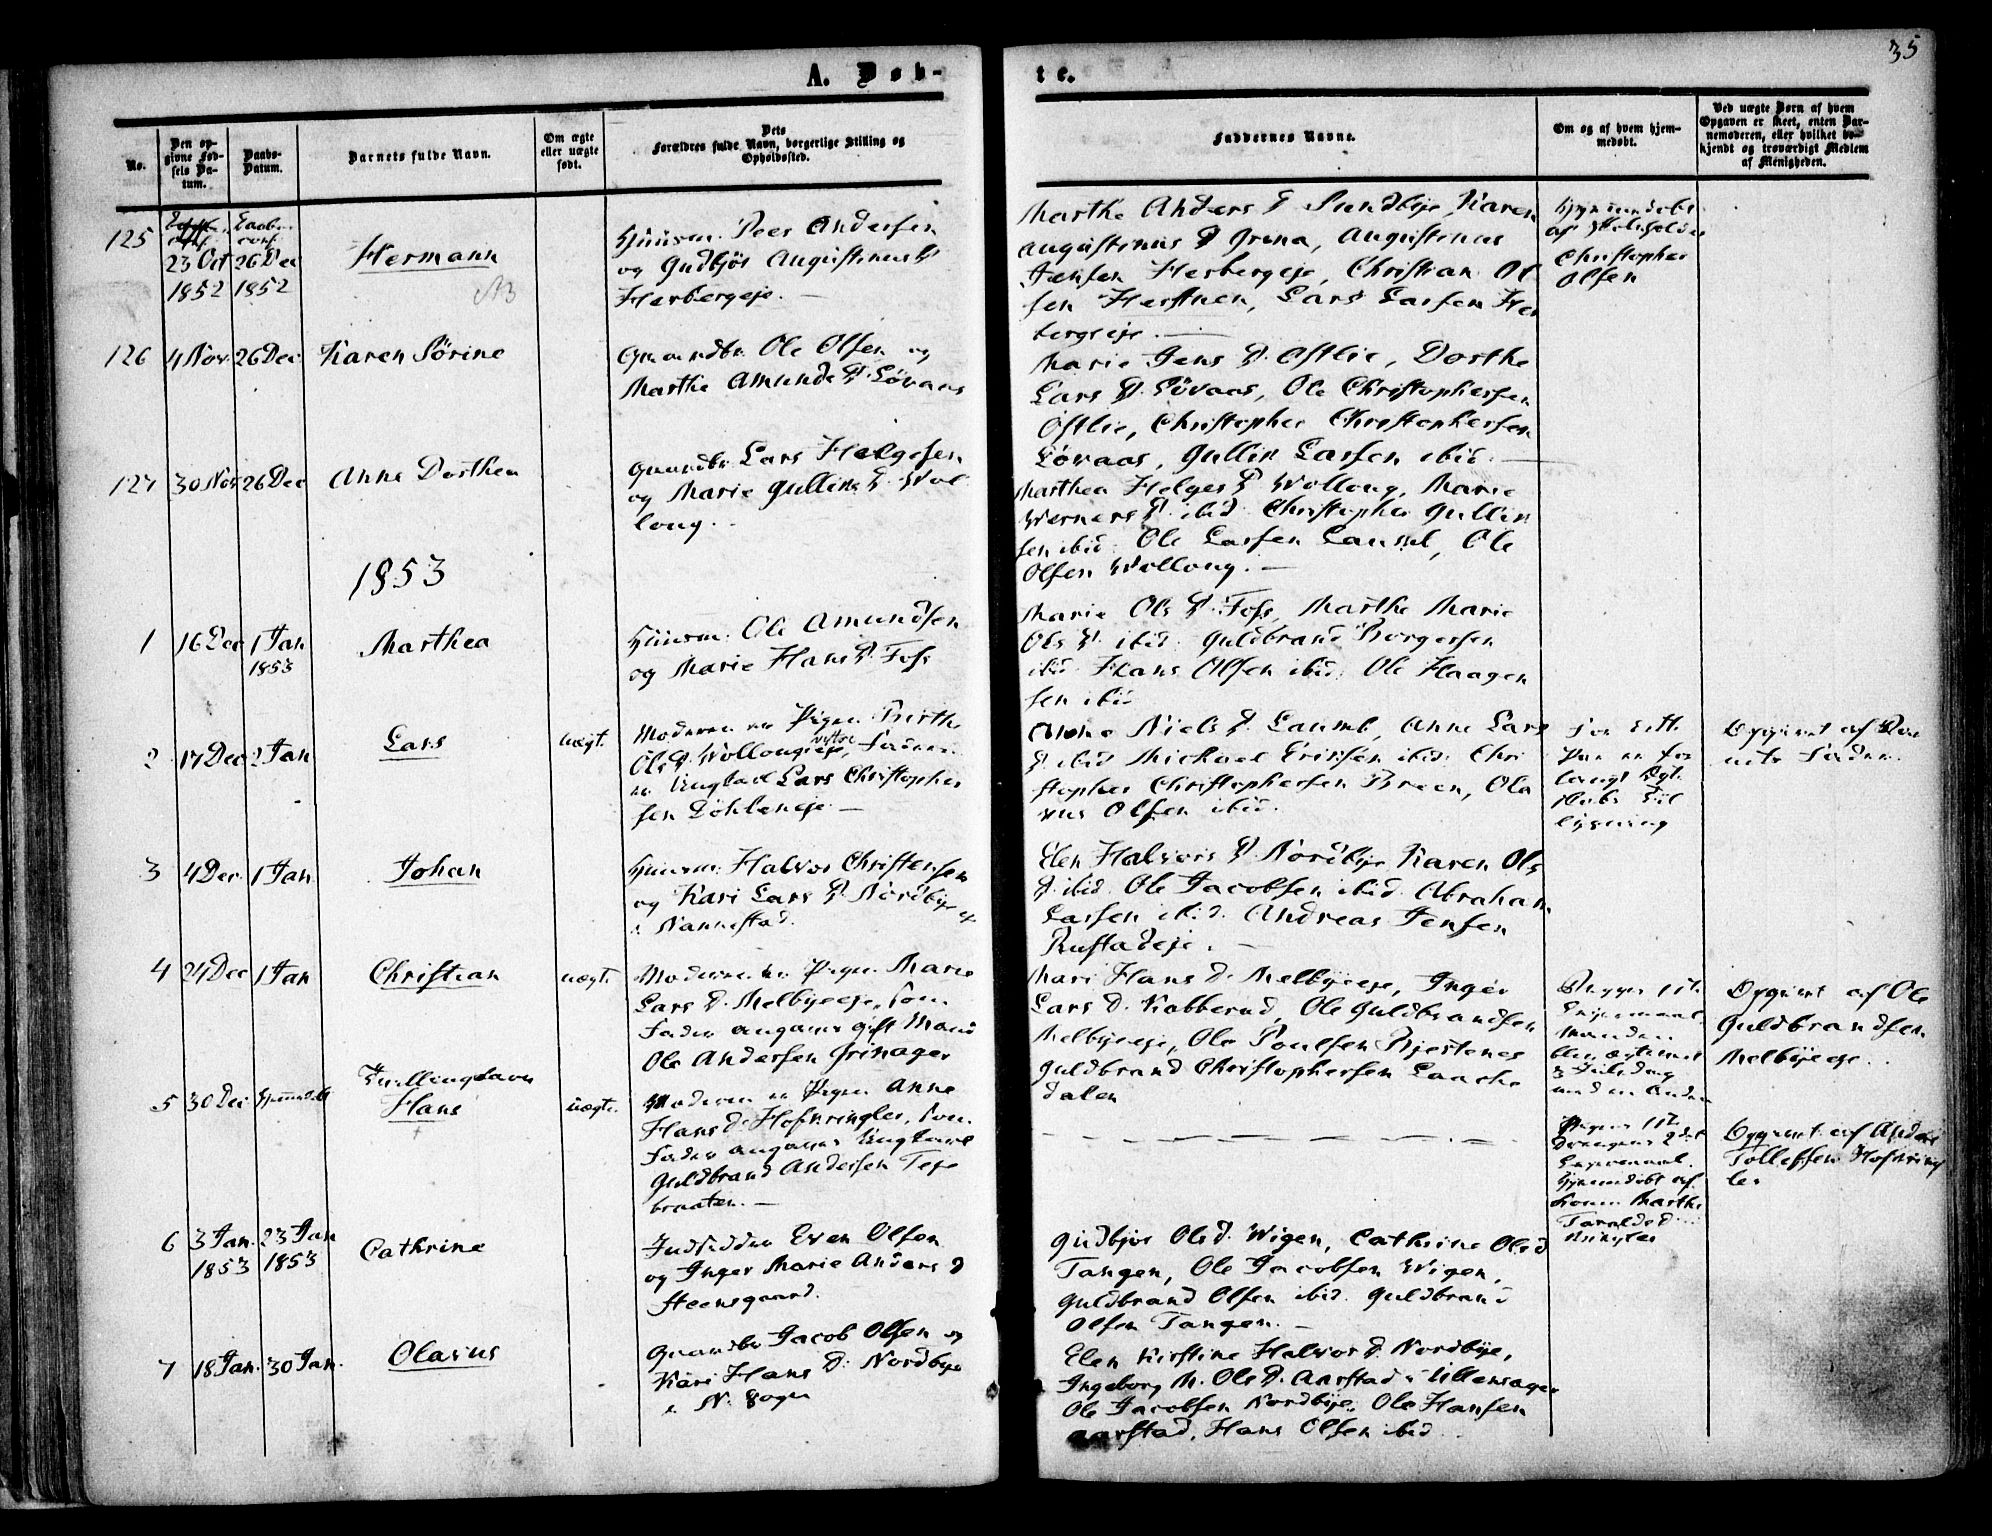 35
A. Døb-
te.
No.
Den op-
givne Fød-
sels Da-
tum.
Daabs-
Datum.
Barnets fulde Navn.
Om ægte
eller uægte
født.
Dets
Forældres fulde Navn, borgerlige Stilling og
Opholdssted.
Faddernes Navne.
Om og af hvem hjem-
medøbt.
Ved uægte Børn af hvem
Opgaven er skeet, enten Bar-
nemoderen, eller hvilket be-
kjendt og troværdigt Medlem
af Menigheden.
125
23 Oct
1852
26 Dec
1852
Hermann
Huusm: Peer Andersen
og Gudbjör Augustinus D
Herbergeje. —
Marthe Anders D Sundbye, Karen
Augustinus D Grina, Augustinus
Jensen Herbergeje, Christian Ol
sen Herstuen, Lars Larsen Her
bergeje. —
Hjemmedøbt
af Skoleholder
Christopher
Olsen
126
4 Nov.
26 Dec
Karen Sörine
Gaardbr. Ole Olsen og
Marthe Amunds D. Lövaas
Marie Jens D. Østlie, Dorthe
Lars D. Lövaas, Ole Christophersen
Østlie, Christopher Christophersen
Lövaas, Gullik Larsen ibid. —
127
30 Nov
26 Dec
Anne Dorthea
Gaardbr Lars Helgesen
og Marie Gulliks D. Wol
loug.
Marthea Helges D Wolloug, Marie
Werners D. ibid. Christopher Gullik
sen ibid. Ole Larsen Laumb, Ole
Olsen Wolloug. —
1853
1
16 Dec
1 Jan
1853
Marthea
Huusm: Ole Amundsen
og Marie Hans D. Foss
Marie Ols D. Foss, Marthe Marie
Ols D. ibid. Guldbrand Borgersen
ibid. Hans Olsen ibid. Ole Haagen
sen ibid
2
17 Dec
2 Jan
Lars
uægt.
Moderen er Pigen Birthe
Ols D. Wollougeje, Faderen
er Ungkarl Lars Christopher
sen Döhleneje —
Anne Niels D. Laumb, Anne Lars
D ibid Michael Eriksen ibid. Chri
stopher Christophersen Breen, Ola
vus Olsen ibid.
lysning
Opgivet af Bar
nets Fader.
3
4 Dec
1 Jan
Johan
Huusm: Halvor Christensen
og Kari Lars D. Nordbye
i Nannestad.
Elen Halvors D. Nordbye Karen Ols
D. ibid. Ole Jacobsen ibid. Abraham
Larsen ibid. Andreas Jensen
Rustadeje. —
4
24 Dec
1 Jan
Christian
uægt.
Moderen er Pigen Marie
Lars D. Melbyeeje, som
Fader angaves gift Mand
Ole Andersen Grinager
Mari Hans D. Melbyeeje, Inger
Lars D. Kabberud, Ole Guldbrandsen
Melbyeeje, Ole Poulsen Bjestenes
Guldbrand Christophersen Laache
dalen
Opgivet af Ole
Guldbrandsen
Melbyeeje.
5
30 Dec
Hjemmedøbt
Tvillingbarn
Hans
uægte.
Moderen er Pigen Anne
Hans D. Hofsringler, som
Fader angaves Ungkarl
Guldbrand Andersen Teje
braaten. —
— — — — — —
Hjemmedøbt af
Konen Marthe
Opgivet af Anders
Tollefsen Hofsring
ler
6
3 Jan.
1853
23 Jan
1853
Cathrine
Indsidder Even Olsen
og Inger Marie Anders D
Steensgaard.
Gudbjör Ols D. Wigen, Cathrine Ols D
Tangen, Ole Jacobsen Wigen,
Guldbrand Olsen ibid. Guldbrand
Olsen Tangen. —
7
18 Jan.
30 Jan.
Olavus
Gaardbr Jacob Olsen og
Kari Hans D. Nordbye
i N. Sogn
Elen Kirstine Halvors D. Nordbye,
Ingeborg M. Ols D. Aarstad i Ullensager
Ole Jacobsen Nordbye, Ole Hansen
Aarstad, Hans Olsen ibid.